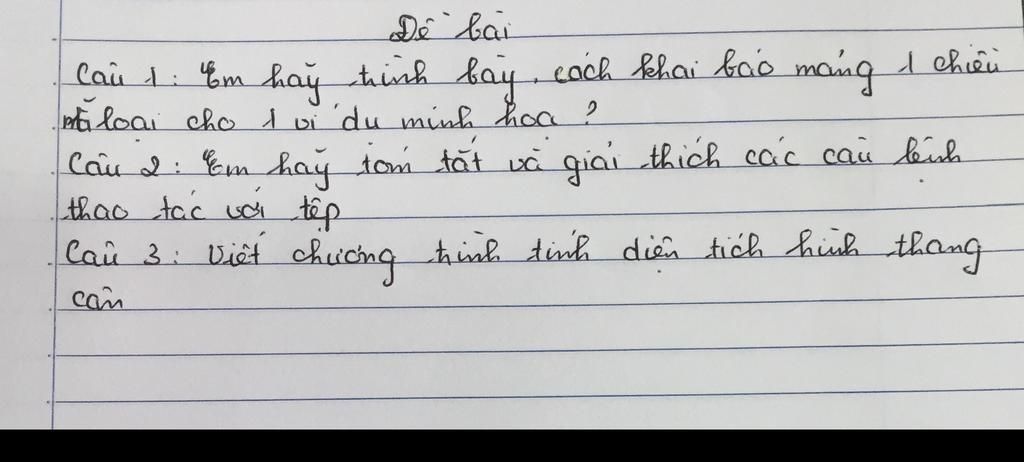 Đề bài
Câu 1: Em hãy trình bày, cách khai báo mảng 1 chiều
mỗi loại cho 1 ví dụ minh họa ?
Câu 2: Em hãy tóm tắt và giải thích các câu lệnh
thao tác với tệp
Câu 3: Viết chương trình tính diện tích hình thang
cân